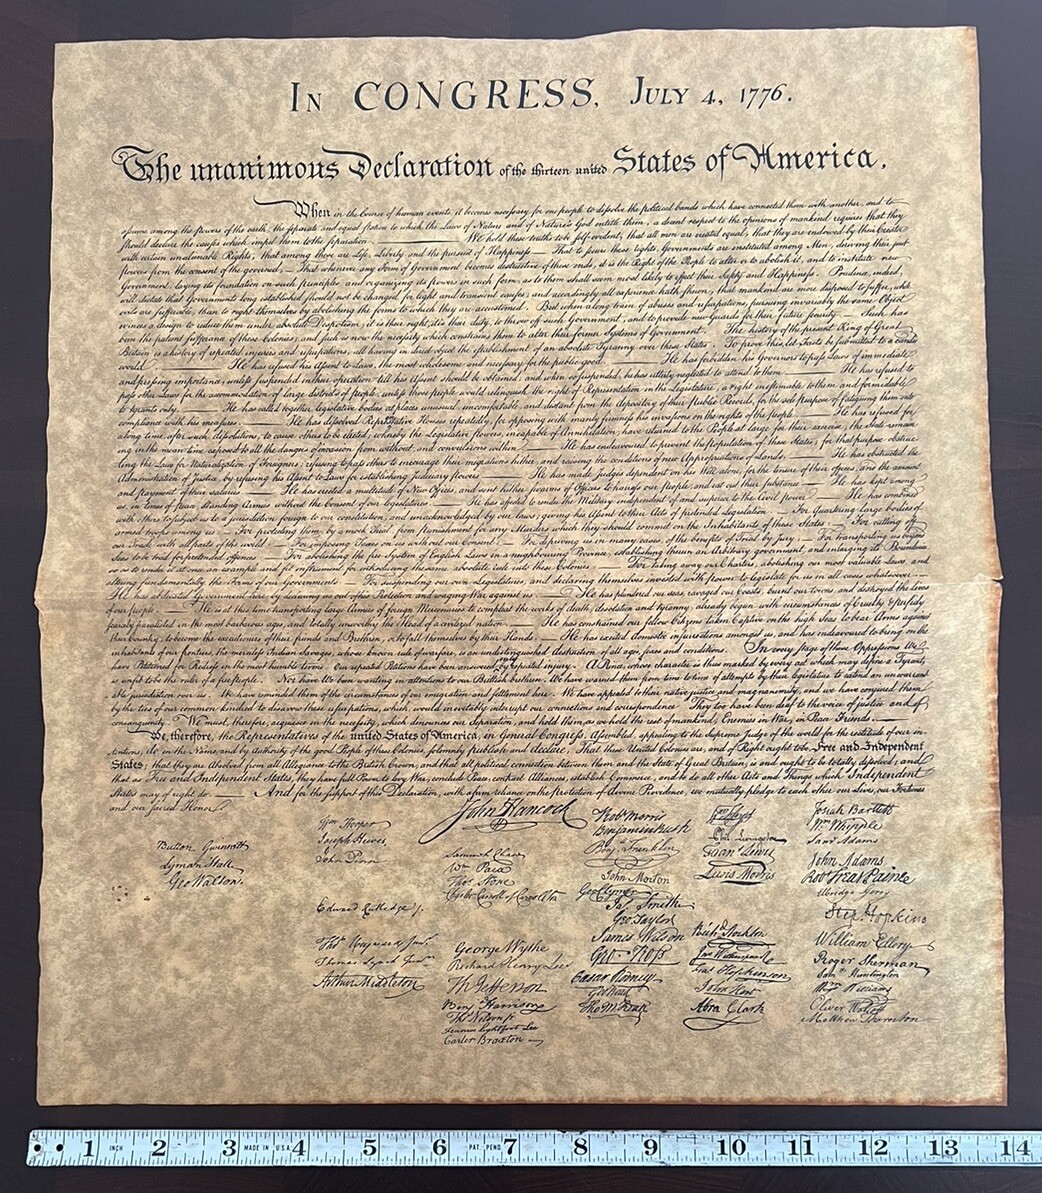 IN CONGRESS, JULY 4, 1776.
The unanimous Declaration of the thirteen united States of America.
When in the Course of human events, it becomes necessary for one people to dissolve the political bands which have connected them with another, and to
assume among the powers of the earth, the separate and equal station to which the Laws of Nature and of Nature's God entitle them, a decent respect to the opinions of mankind requires that they
should declare the causes which impel them to the separation. — We hold these truths to be self-evident, that all men are created equal, that they are endowed by their Creator
with certain unalienable Rights, that among these are Life, Liberty and the pursuit of Happiness — That to secure these rights, Governments are instituted among Men, deriving their just
powers from the consent of the governed, — That whenever any Form of Government becomes destructive of these ends, it is the Right of the People to alter or to abolish it, and to institute new
Government, laying its foundation on such principles and organizing its powers in such form, as to them shall seem most likely to effect their Safety and Happiness. Prudence, indeed,
will dictate that Governments long established should not be changed for light and transient causes; and accordingly all experience hath shewn, that mankind are more disposed to suffer, while
evils are sufferable, than to right themselves by abolishing the forms to which they are accustomed. But when a long train of abuses and usurpations, pursuing invariably the same Object
evinces a design to reduce them under absolute Despotism, it is their right, it is their duty, to throw off such Government, and to provide new Guards for their future security. — Such has
been the patient sufferance of these Colonies; and such is now the necessity which constrains them to alter their former Systems of Government. The history of the present King of Great
Britain is a history of repeated injuries and usurpations, all having in direct object the establishment of an absolute Tyranny over these States. To prove this, let Facts be submitted to a candid
world. — He has refused his Assent to Laws, the most wholesome and necessary for the public good. — He has forbidden his Governors to pass Laws of immediate
and pressing importance, unless suspended in their operation till his Assent should be obtained; and when so suspended, he has utterly neglected to attend to them. — He has refused to
pass other Laws for the accommodation of large districts of people, unless those people would relinquish the right of Representation in the Legislature, a right inestimable to them and formidable
to tyrants only. — He has called together legislative bodies at places unusual, uncomfortable, and distant from the depository of their Public Records, for the sole purpose of fatiguing them into
compliance with his measures. — He has dissolved Representative Houses repeatedly, for opposing with manly firmness his invasions on the rights of the people. — He has refused for
a long time, after such dissolutions, to cause others to be elected; whereby the Legislative powers, incapable of Annihilation, have returned to the People at large for their exercise; the State remain
ing in the mean time exposed to all the dangers of invasion from without, and convulsions within. — He has endeavoured to prevent the population of these States; for that purpose obstruc
ting the Laws for Naturalization of Foreigners; refusing to pass others to encourage their migrations hither, and raising the conditions of new Appropriations of Lands. — He has obstructed the
Administration of Justice, by refusing his Assent to Laws for establishing Judiciary powers. — He has made Judges dependent on his Will alone, for the tenure of their offices, and the amount
and payment of their salaries. — He has erected a multitude of New Offices, and sent hither swarms of Officers to harrass our people, and eat out their substance. — He has kept among
us, in times of peace, Standing Armies without the Consent of our legislatures. — He has affected to render the Military independent of and superior to the Civil power. — He has combined
with others to subject us to a jurisdiction foreign to our constitution, and unacknowledged by our laws; giving his Assent to their Acts of pretended Legislation: — For Quartering large bodies of
armed troops among us: — For protecting them, by a mock Trial, from punishment for any Murders which they should commit on the Inhabitants of these States: — For cutting off
our Trade with all parts of the world: — For imposing Taxes on us without our Consent: — For depriving us in many cases, of the benefits of Trial by Jury: — For transporting us beyond
Seas to be tried for pretended offences — For abolishing the free System of English Laws in a neighbouring Province, establishing therein an Arbitrary government, and enlarging its Boundaries
so as to render it at once an example and fit instrument for introducing the same absolute rule into these Colonies: — For taking away our Charters, abolishing our most valuable Laws, and
altering fundamentally the Forms of our Governments: — For suspending our own Legislatures, and declaring themselves invested with power to legislate for us in all cases whatsoever. —
He has abdicated Government here, by declaring us out of his Protection and waging War against us. — He has plundered our seas, ravaged our Coasts, burnt our towns, and destroyed the lives
of our people. — He is at this time transporting large Armies of foreign Mercenaries to compleat the works of death, desolation and tyranny, already begun with circumstances of Cruelty & perfidy
scarcely paralleled in the most barbarous ages, and totally unworthy the Head of a civilized nation. — He has constrained our fellow Citizens taken Captive on the high Seas to bear Arms against
their Country, to become the executioners of their friends and Brethren, or to fall themselves by their Hands. — He has excited domestic insurrections amongst us, and has endeavoured to bring on the
inhabitants of our frontiers, the merciless Indian Savages, whose known rule of warfare, is an undistinguished destruction of all ages, sexes and conditions. In every stage of these Oppressions We
have Petitioned for Redress in the most humble terms: Our repeated Petitions have been answered only by repeated injury. A Prince, whose character is thus marked by every act which may define a Tyrant,
is unfit to be the ruler of a free people. Nor have We been wanting in attentions to our Brittish brethren. We have warned them from time to time of attempts by their legislature to extend an unwarrant
able jurisdiction over us. We have reminded them of the circumstances of our emigration and settlement here. We have appealed to their native justice and magnanimity, and we have conjured them
by the ties of our common kindred to disavow these usurpations, which, would inevitably interrupt our connections and correspondence. They too have been deaf to the voice of justice and of
consanguinity. We must, therefore, acquiesce in the necessity, which denounces our Separation, and hold them, as we hold the rest of mankind, Enemies in War, in Peace Friends. —
We, therefore, the Representatives of the united States of America, in General Congress, Assembled, appealing to the Supreme Judge of the world for the rectitude of our in
tentions, do, in the Name, and by Authority of the good People of these Colonies, solemnly publish and declare, That these United Colonies are, and of Right ought to be Free and Independent
States; that they are Absolved from all Allegiance to the British Crown, and that all political connection between them and the State of Great Britain, is and ought to be totally dissolved; and
that as Free and Independent States, they have full Power to levy War, conclude Peace, contract Alliances, establish Commerce, and to do all other Acts and Things which Independent
States may of right do. — And for the support of this Declaration, with a firm reliance on the protection of divine Providence, we mutually pledge to each other our Lives, our Fortunes
and our sacred Honor.
John Hancock
Button Gwinnett
Lyman Hall
Geo Walton.
Wm Hooper
Joseph Hewes,
John Penn
Edward Rutledge /.
Thos Heyward Junr.
Thomas Lynch Junr.
Arthur Middleton
Samuel Chase
Wm Paca
Thos Stone
Charles Carroll of Carrollton
George Wythe
Richard Henry Lee
Th Jefferson
Benj Harrison
Thos Nelson jr.
Francis Lightfoot Lee
Carter Braxton
Robt Morris
Benjamin Rush
Benj. Franklin
John Morton
Geo Clymer
Jas. Smith
Geo. Taylor
James Wilson
Geo. Ross
Caesar Rodney
Geo Read
Tho M:Kean
Wm Floyd
Phil. Livingston
Frans. Lewis
Lewis Morris
Richd. Stockton
Jno Witherspoon
Fras. Hopkinson
John Hart
Abra Clark
Josiah Bartlett
Wm Whipple
Saml Adams
John Adams
Robt Treat Paine
Elbridge Gerry
Step. Hopkins
William Ellery
Roger Sherman
Saml Huntington
Wm Williams
Oliver Wolcott
Matthew Thornton
1 INCH 2 3 MADE IN U.S.A. 4 5 6 PAT. PEND. 7 8 9 10 11 12 13 14